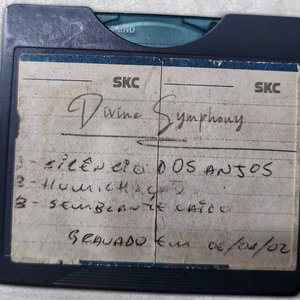 END
SKC
SKC
Divine Symphony
- SILÊNCIO DOS ANJOS
- HUMILHAÇÃO
3 - SEMBLANTE CAÍDO
GRAVADO EM 06/02/02